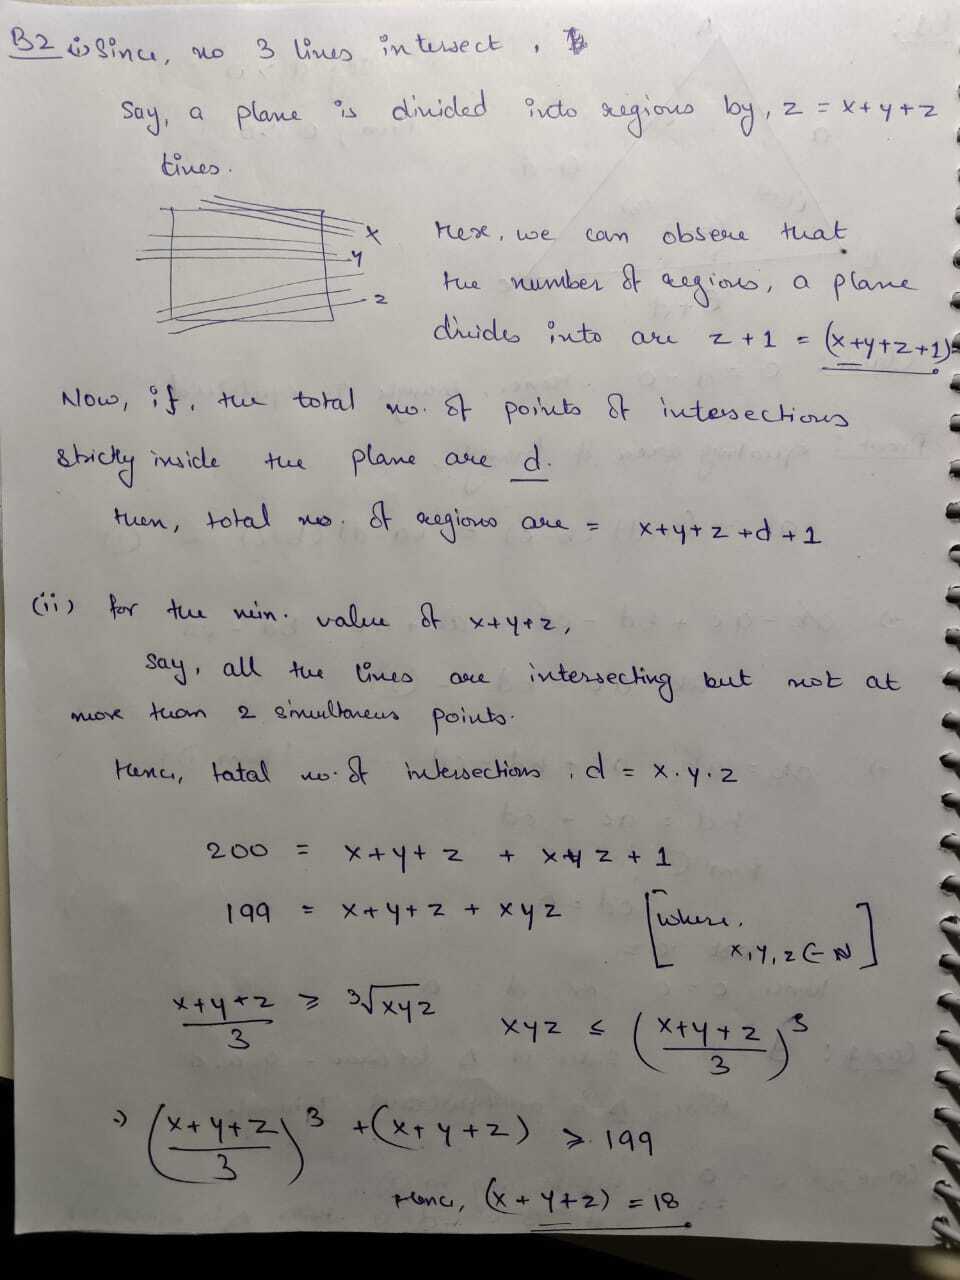 B2 i) Since, no 3 lines intersect,
Say, a plane is divided into regions by, z = x+y+z
lines.
x
y
z
Here, we can obsere that
the number of regions, a plane
divides into are z+1 = (x+y+z+1)
Now, if, the total no. of points of intersections
strictly inside the plane are d.
then, total no. of regions are = x+y+z+d+1
(ii) for the min. value of x+y+z,
Say, all the lines are intersecting but not at
more than 2 simultaneus points.
Hence, total no. of intersections, d = x.y.z
200 = x+y+z + xyz + 1
199 = x+y+z + xyz [where, x,y,z ∈ N]
(x+y+z)/3 ≥ ³√xyz xyz ≤ ((x+y+z)/3)³
∴) ((x+y+z)/3)³ + (x+y+z) ≥ 199
Hence, (x+y+z) = 18